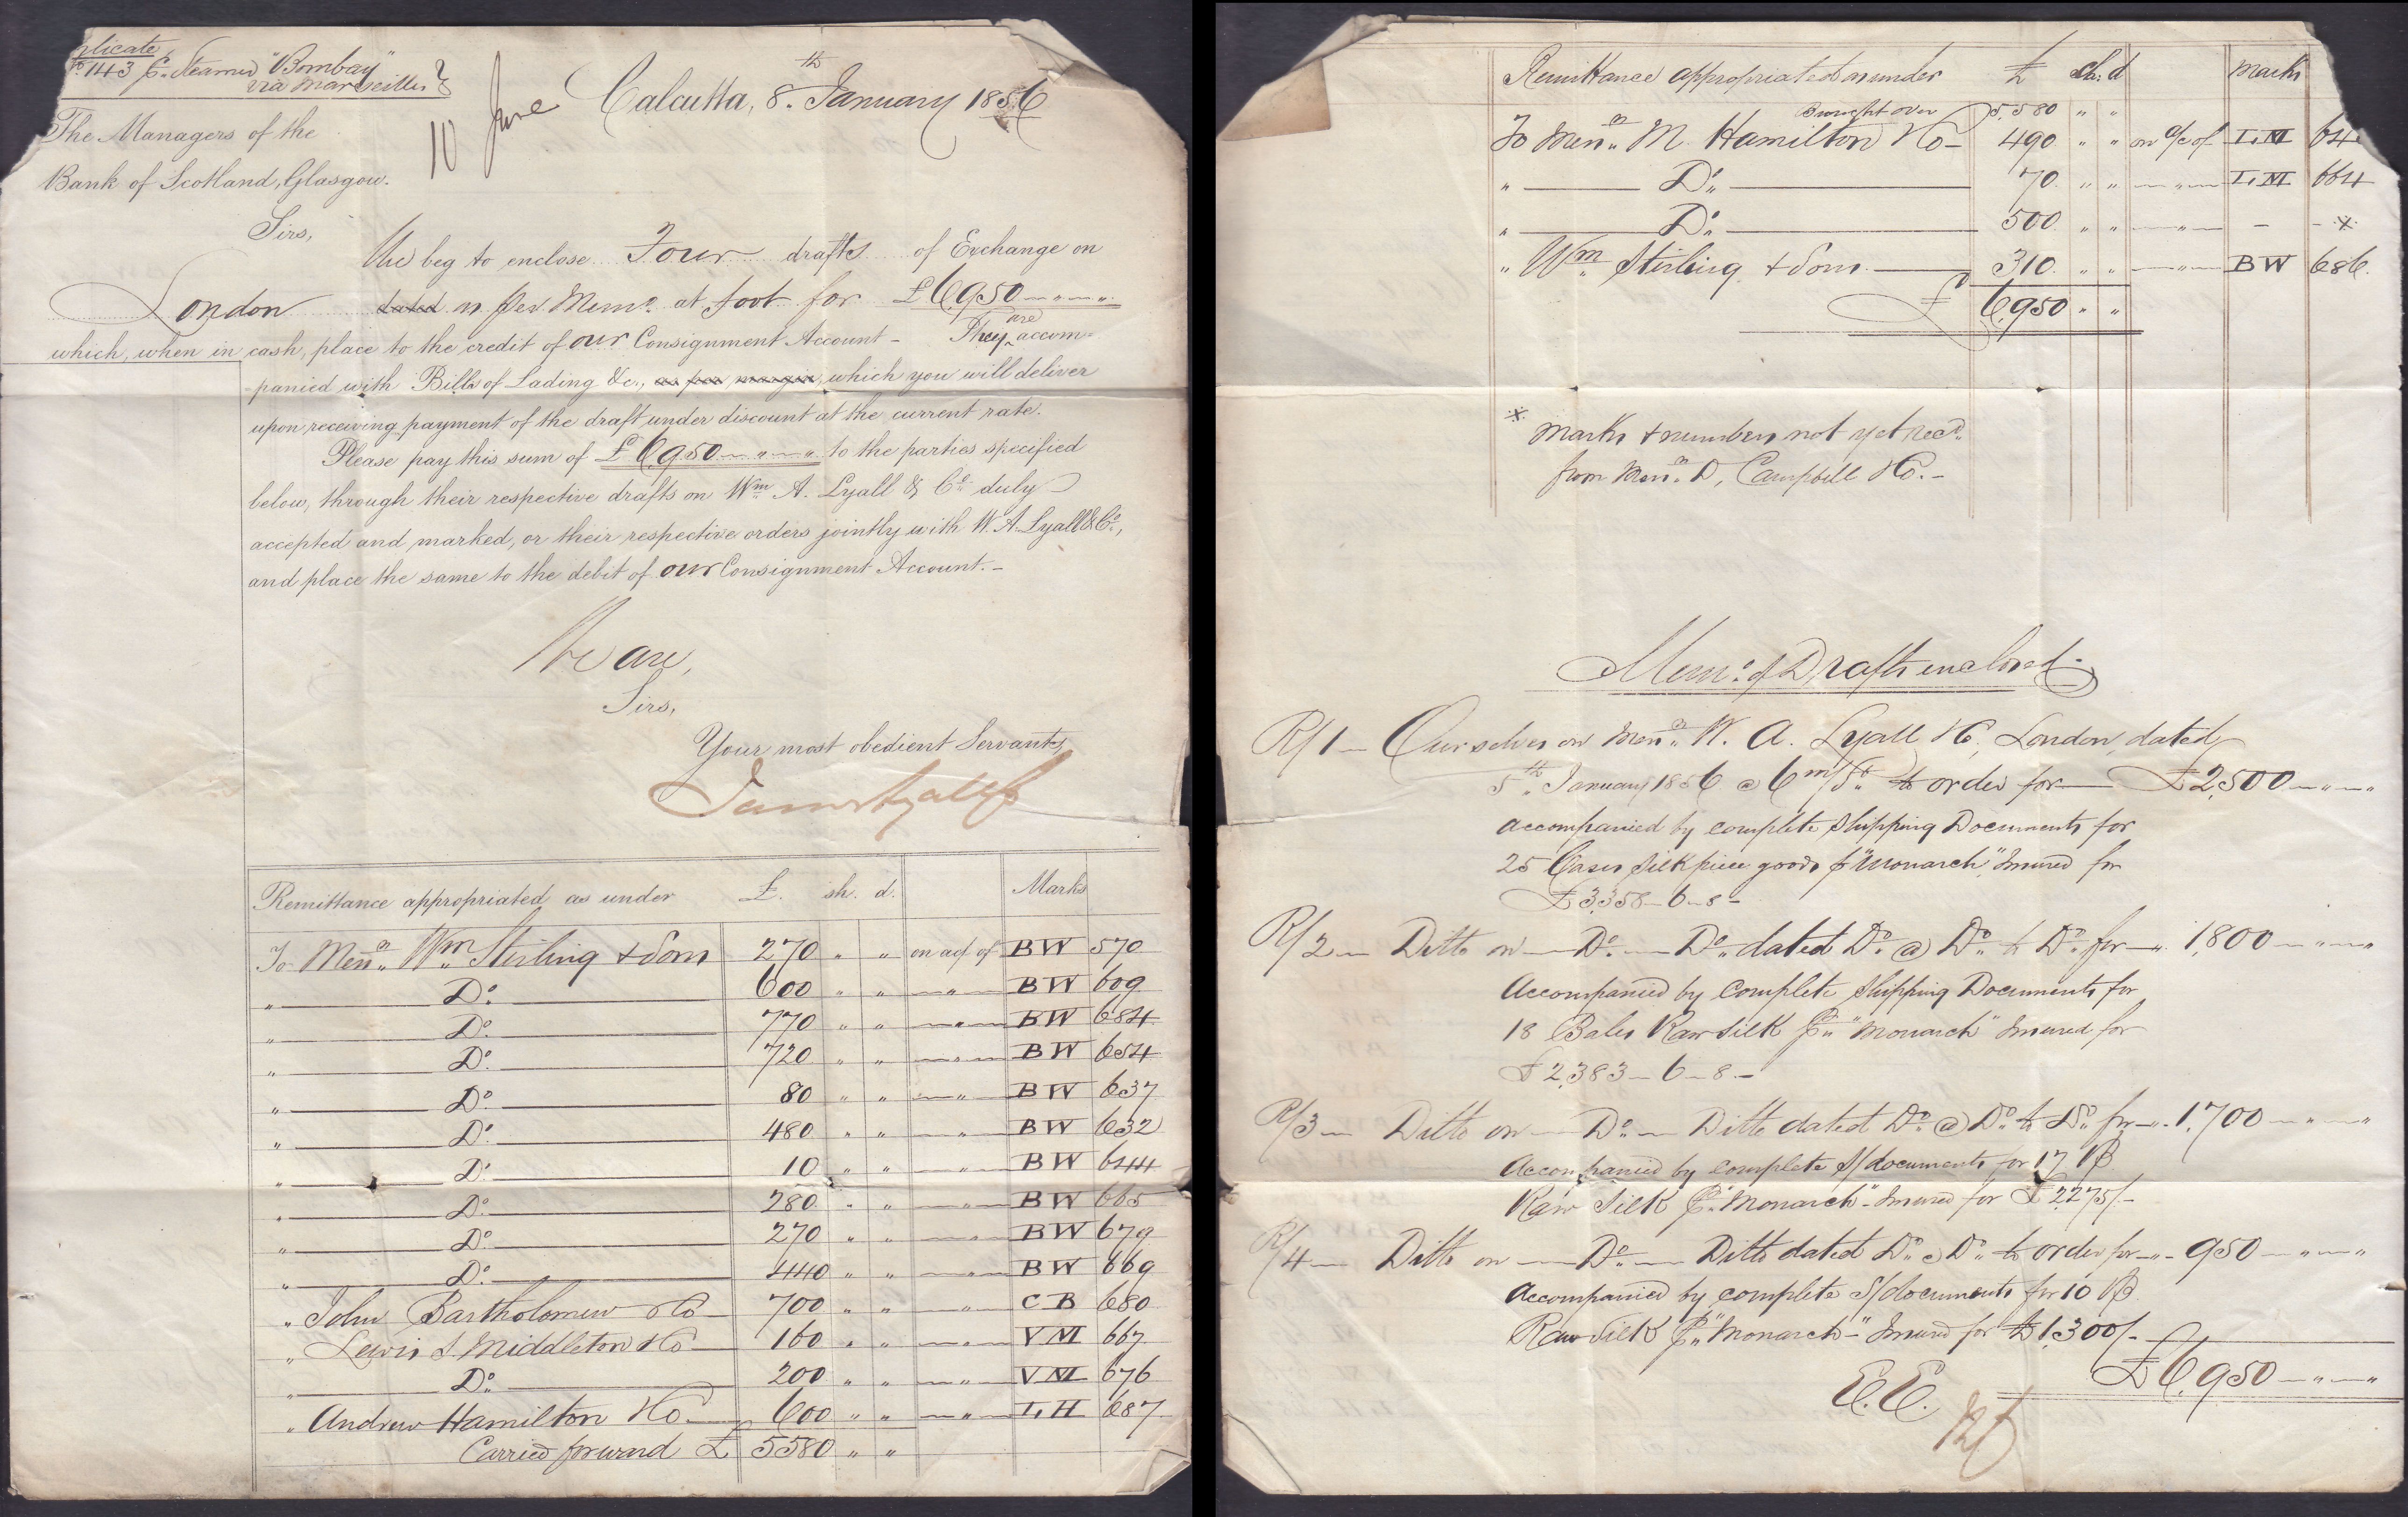 plicate
No 143 p. Steamer "Bombay"
via Marseilles
10 June
Calcutta, 8.th January 1856
The Managers of the
Bank of Scotland, Glasgow.
Sirs,
We beg to enclose Four drafts of Exchange on
London dated as per Memo. at foot for £6950 — " — "
which, when in cash, place to the credit of our Consignment Account - They are accom=
panied with Bills of Lading &c., as per margin, which you will deliver
upon receiving payment of the draft under discount at the current rate.
Please pay this sum of £6,950 — " — " to the parties specified
below, through their respective drafts on Wm A. Lyall & Co. duly
accepted and marked, or their respective orders jointly with W. A. Lyall & Co.,
and place the same to the debit of our Consignment Account. -
We are,
Sirs,
Your most obedient Servants,
Remittance appropriated as under £. sh. d. Marks
To Messrs. Wm. Stirling & Sons 270 " " on a/c of BW 570
" Do. 600 " " " BW 609
" Do. 770 " " " BW 684
" Do. 720 " " " BW 654
" Do. 80 " " " BW 637
" Do. 480 " " " BW 632
" Do. 10 " " " BW 644
" Do. 280 " " " BW 665
" Do. 270 " " " BW 679
" Do. 440 " " " BW 669
" John Bartholomew & Co 700 " " " CB 680
" Lewis S. Middleton & Co 160 " " " VM 667
" Do. 200 " " " VM 676
" Andrew Hamilton & Co. 600 " " " LH 687
Carried forward £ 5580 " "
Remittance appropriated as under £ sh: d Marks
Brought over 5,580 " "
To Messrs. M. Hamilton & Co - 490 " " on a/c of LM 64
" Do. 70 " " " LM 664
" Do. 500 " " " - - *
" Wm. Stirling & Sons 310 " " " BW 686
£ 6,950 " "
* Marks & numbers not yet recd.
from Messrs. D. Campbell & Co. -
Memo. of Drafts enclosed -
R/1 - Ourselves on Messrs. W. A. Lyall & Co, London, dated
5th. January 1856 @ 6 m/St. to order for £2,500 — " — "
accompanied by complete Shipping Documents for
25 Cases Silk piece goods p "Monarch", Insured for
£3,358 - 6 - 8 -
R/2 - Ditto on — Do. — Do. dated Do. @ Do. to Do. for — " 1,800 — " — "
Accompanied by Complete Shipping Documents for
18 Bales Raw Silk Pr. "Monarch" Insured for
£2,383 - 6 - 8 -
R/3 - Ditto on — Do. — Ditto dated Do. @ Do. to Do. for — " 1,700 — " — "
Accompanied by complete S/documents for 17 B/
Raw Silk Pr. "Monarch" - Insured for £2275/-
R/4 - Ditto on — Do. — Ditto dated Do. @ Do. to order for — " 950 — " — "
Accompanied by complete S/documents for 10 B/
Raw Silk Pr. "Monarch" - Insured for £1,300/-
£6,950 — " — "
E.E.